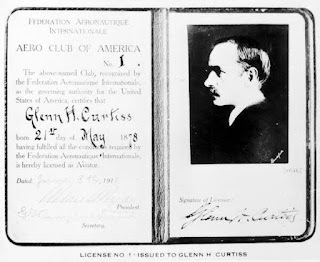 FEDERATION AERONAUTIQUE
INTERNATIONALE
AERO CLUB OF AMERICA
No. 1.
The above-named Club, recognized by
the Federation Aeronautique Internationale,
as the governing authority for the United
States of America, certifies that
Glenn H. Curtiss
born 21st day of May 1878
having fulfilled all the conditions required by
the Federation Aeronautique Internationale,
is hereby licensed as Aviator.
Dated
President
Secretary
Signature of Licensee
Glenn H. Curtiss
LICENSE NO 1 - ISSUED TO GLENN H CURTISS